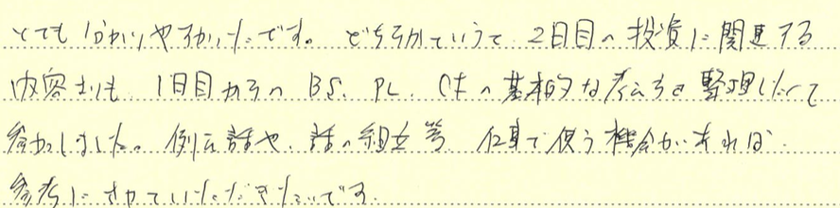 とても分かりやすかったです。どちらかというと、2日目の投資に関連する
内容よりも、1日目からの BS、PL、CFの基本的な考え方を整理したくて
参加しました。例え話や、話の組立等、仕事で使う機会があれば、
参考にさせていただきたいです。